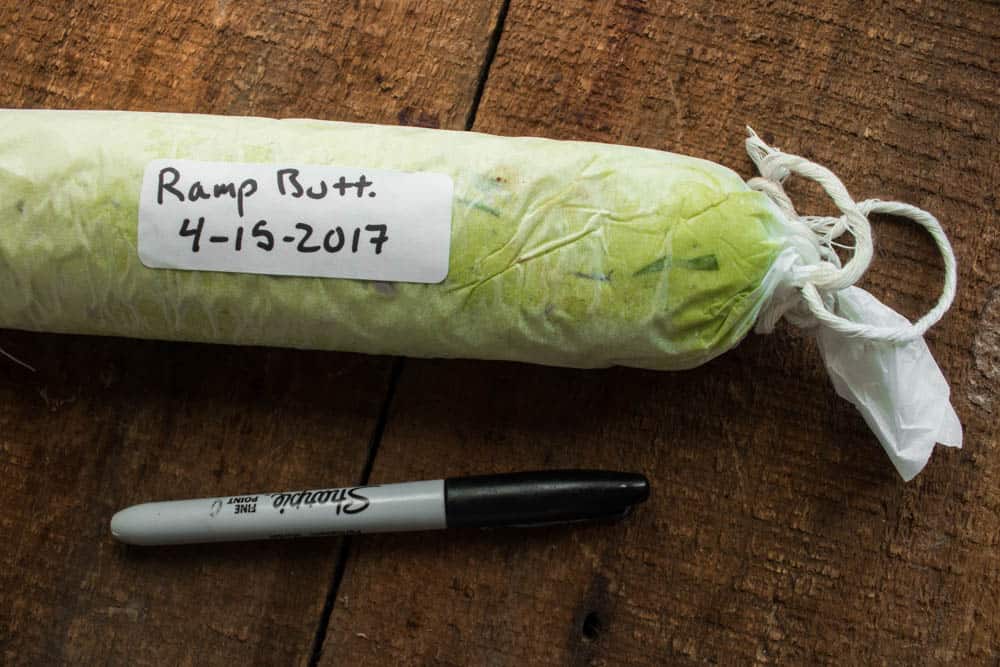 Ramp Butt.
4-15-2017
Sharpie
FINE
POINT